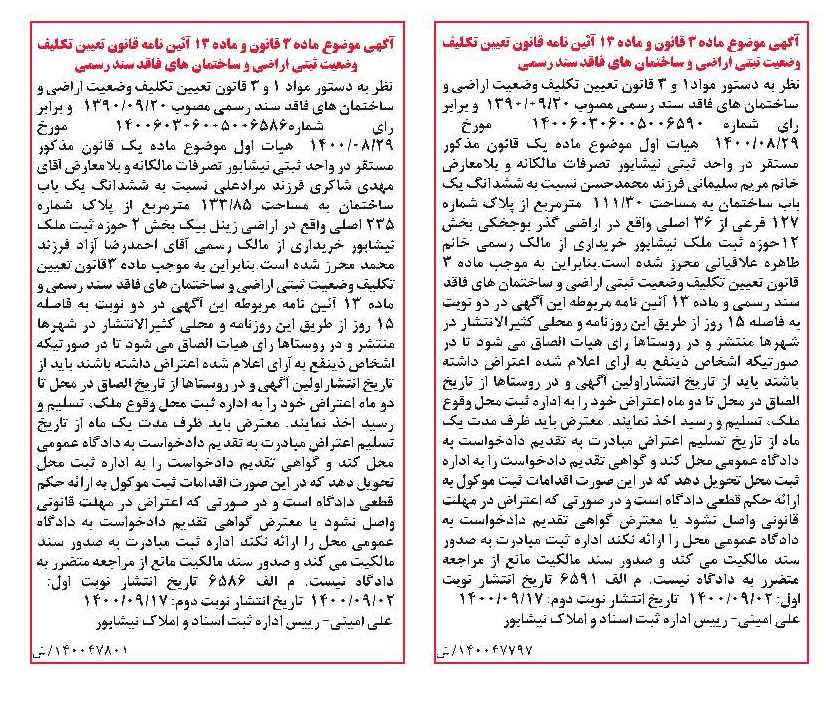 آگهی موضوع ماده ۳ قانون و ماده ۱۳ آئین نامه قانون تعیین تکلیف
وضعیت ثبتی اراضی و ساختمان های فاقد سند رسمی
نظر به دستور مواد۱ و ۳ قانون تعیین تکلیف وضعیت اراضی و
ساختمان های فاقد سند رسمی مصوب ۱۳۹۰/۰۹/۲۰ و برابر
رای شماره ۱۴۰۰۶۰۳۰۶۰۰۵۰۰۶۵۹۰ مورخ
۱۴۰۰/۰۸/۲۹ هیات اول موضوع ماده یک قانون مذکور
مستقر در واحد ثبتی نیشابور تصرفات مالکانه و بلامعارض
خانم مریم سلیمانی فرزند محمدحسن نسبت به ششدانگ یک
باب ساختمان به مساحت ۱۱۱/۳۰ مترمربع از پلاک شماره
۱۲۷ فرعی از ۳۶ اصلی واقع در اراضی گذر بوجخکی بخش
۱۲حوزه ثبت ملک نیشابور خریداری از مالک رسمی خانم
طاهره علاقبانی محرز شده است.بنابراین به موجب ماده ۳
قانون تعیین تکلیف وضعیت ثبتی اراضی و ساختمان های فاقد
سند رسمی و ماده ۱۳ آئین نامه مربوطه این آگهی در دو نوبت
به فاصله ۱۵ روز از طریق این روزنامه و محلی کثیرالانتشار در
شهرها منتشر و در روستاها رای هیات الصاق می شود تا در
صورتیکه اشخاص ذینفع به آرای اعلام شده اعتراض داشته
باشند باید از تاریخ انتشاراولین آگهی و در روستاها از تاریخ
الصاق در محل تا دو ماه اعتراض خود را به اداره ثبت محل وقوع
ملک، تسلیم و رسید اخذ نمایند. معترض باید ظرف مدت یک
ماه از تاریخ تسلیم اعتراض مبادرت به تقدیم دادخواست به
دادگاه عمومی محل کند و گواهی تقدیم دادخواست را به اداره
ثبت محل تحویل دهد که در این صورت اقدامات ثبت موکول به
ارائه حکم قطعی دادگاه است و در صورتی که اعتراض در مهلت
قانونی واصل نشود یا معترض گواهی تقدیم دادخواست به
دادگاه عمومی محل را ارائه نکند اداره ثبت مبادرت به صدور
سند مالکیت می کند و صدور سند مالکیت مانع از مراجعه
متضرر به دادگاه نیست. م الف ۶۵۹۱ تاریخ انتشار نوبت
اول: ۱۴۰۰/۰۹/۰۲ تاریخ انتشار نوبت دوم: ۱۴۰۰/۰۹/۱۷
علی امینی- رییس اداره ثبت اسناد و املاک نیشابور
۱۴۰۰۴۷۷۹۷/ش
آگهی موضوع ماده ۳ قانون و ماده ۱۳ آئین نامه قانون تعیین تکلیف
وضعیت ثبتی اراضی و ساختمان های فاقد سند رسمی
نظر به دستور مواد ۱ و ۳ قانون تعیین تکلیف وضعیت اراضی و
ساختمان های فاقد سند رسمی مصوب ۱۳۹۰/۰۹/۲۰ و برابر
رای شماره۱۴۰۰۶۰۳۰۶۰۰۵۰۰۶۵۸۶ مورخ
۱۴۰۰/۰۸/۲۹ هیات اول موضوع ماده یک قانون مذکور
مستقر در واحد ثبتی نیشابور تصرفات مالکانه و بلامعارض آقای
مهدی شاکری فرزند مرادعلی نسبت به ششدانگ یک باب
ساختمان به مساحت ۱۳۳/۸۵ مترمربع از پلاک شماره
۲۳۵ اصلی واقع در اراضی زینل بیک بخش ۲ حوزه ثبت ملک
نیشابور خریداری از مالک رسمی آقای احمدرضا آزاد فرزند
محمد محرز شده است.بنابراین به موجب ماده ۳قانون تعیین
تکلیف وضعیت ثبتی اراضی و ساختمان های فاقد سند رسمی و
ماده ۱۳ آئین نامه مربوطه این آگهی در دو نوبت به فاصله
۱۵ روز از طریق این روزنامه و محلی کثیرالانتشار در شهرها
منتشر و در روستاها رای هیات الصاق می شود تا در صورتیکه
اشخاص ذینفع به آرای اعلام شده اعتراض داشته باشند باید از
تاریخ انتشاراولین آگهی و در روستاها از تاریخ الصاق در محل تا
دو ماه اعتراض خود را به اداره ثبت محل وقوع ملک، تسلیم و
رسید اخذ نمایند. معترض باید ظرف مدت یک ماه از تاریخ
تسلیم اعتراض مبادرت به تقدیم دادخواست به دادگاه عمومی
محل کند و گواهی تقدیم دادخواست را به اداره ثبت محل
تحویل دهد که در این صورت اقدامات ثبت موکول به ارائه حکم
قطعی دادگاه است و در صورتی که اعتراض در مهلت قانونی
واصل نشود یا معترض گواهی تقدیم دادخواست به دادگاه
عمومی محل را ارائه نکند اداره ثبت مبادرت به صدور سند
مالکیت می کند و صدور سند مالکیت مانع از مراجعه متضرر به
دادگاه نیست. م الف ۶۵۸۶ تاریخ انتشار نوبت اول:
۱۴۰۰/۰۹/۰۲ تاریخ انتشار نوبت دوم: ۱۴۰۰/۰۹/۱۷
علی امینی- رییس اداره ثبت اسناد و املاک نیشابور
۱۴۰۰۴۷۸۰۱/ش